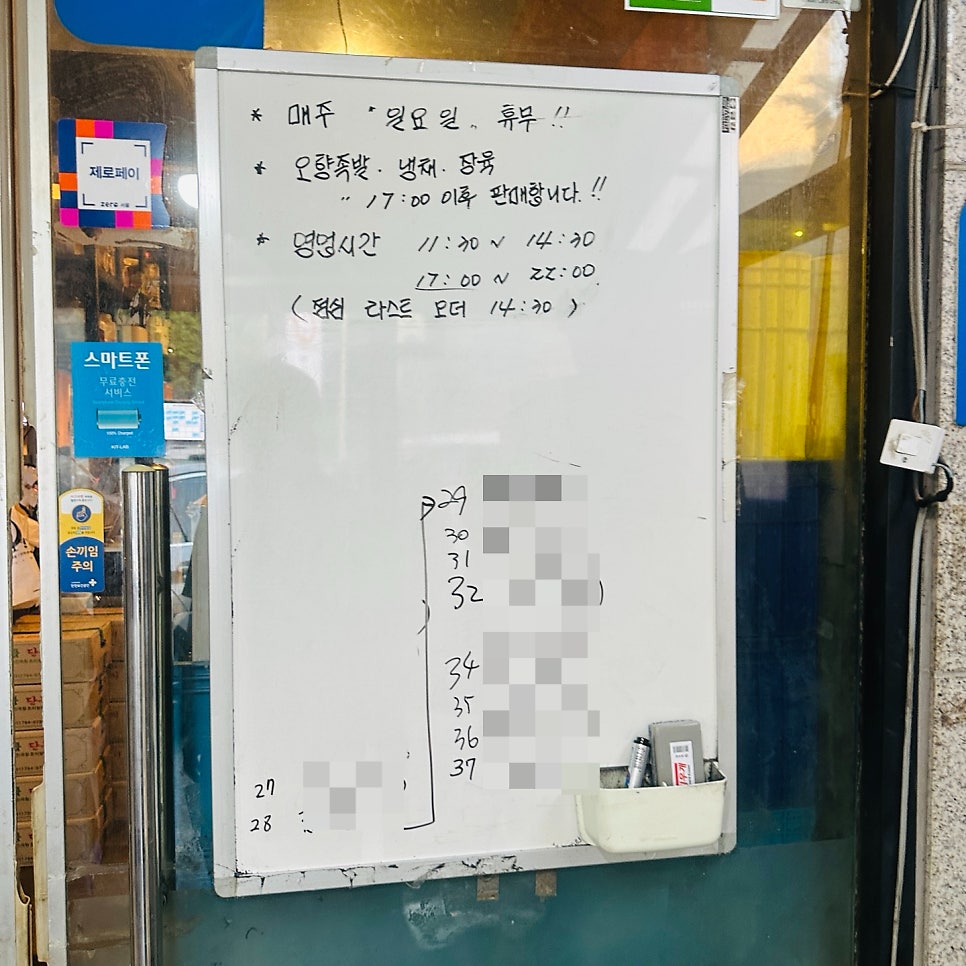 * 매주 "일요일" 휴무!!
* 오향족발. 냉채. 장육
" 17:00 이후 판매합니다.!!
* 영업시간 11:30 ~ 14:30
17:00 ~ 22:00
(점심 라스트 오더 14:30)
29
30
31
32
34
35
36
37
27
28
제로페이
zero 서울
스마트폰
무료충전
서비스
100% Charged
KIT-LAB
손끼임
주의